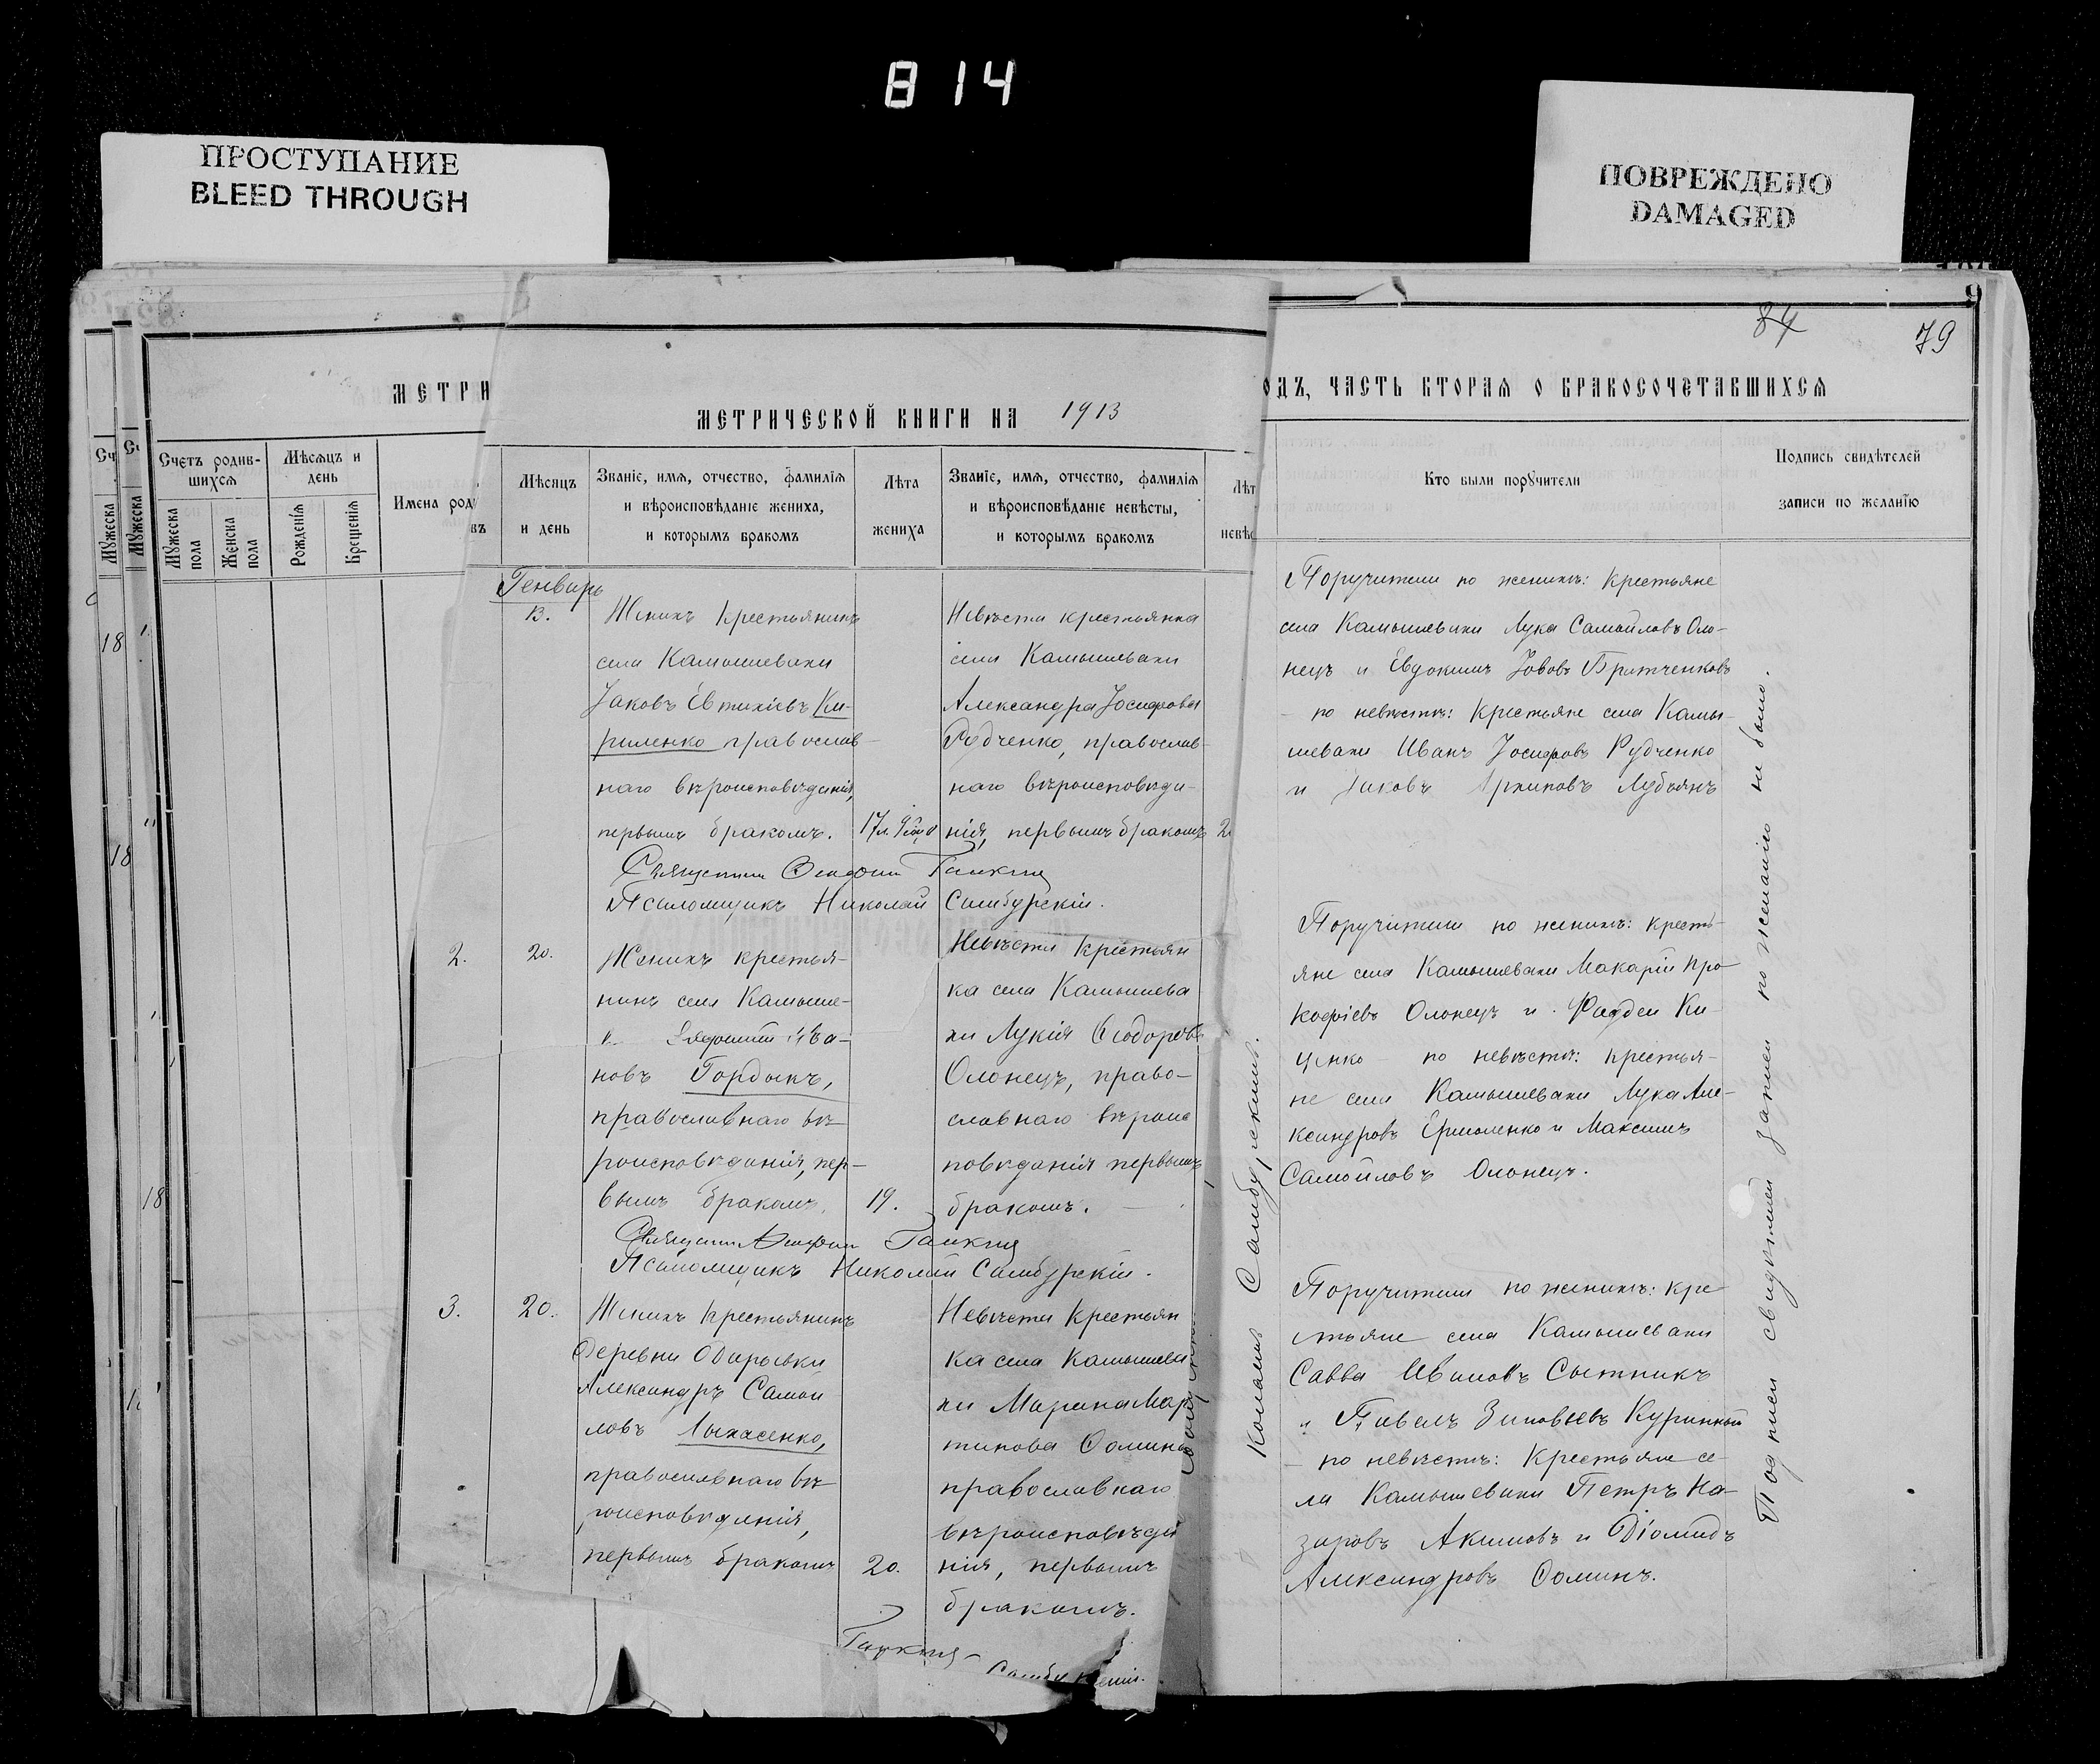 814
ПРОСТУПАНИЕ
BLEED THROUGH
ПОВРЕЖДЕНО
DAMAGED
84
79
МЕТРИ
МЕТРИЧЕСКОЙ КНИГИ НА 1913
ОДЪ, ЧАСТЬ ВТОРАЯ О БРАКОСОЧЕТАВШИХСЯ
Счетъ родив-
шихся
Мѣсяцъ и
день
Мужеска
пола
Женска
пола
Рожденія
Крещенія
Имена род
Мѣсяцъ
и день
Званіе, имя, отчество, фамилія
и вѣроисповѣданіе жениха,
и которымъ бракомъ
Лѣта
жениха
Званіе, имя, отчество, фамилія
и вѣроисповѣданіе невѣсты,
и которымъ бракомъ
Лѣт
невѣс
Кто были поручители
Подпись свидѣтелей
записи по желанію
Генварь
13.
Женихъ крестьянинъ
села Камышевахи
Іаковъ Евтихіевъ Ки-
риленко православ-
наго вѣроисповѣданія,
первымъ бракомъ.
Невѣста крестьянка
села Камышевахи
Александра Іосифова
Рудченко, православ-
наго вѣроисповѣда-
нія, первымъ бракомъ
Псаломщикъ Николай Самбурскій.
Поручители по женихѣ: крестьяне
села Камышевахи Лука Самойловъ Оло-
нецъ и Евдокимъ Іововъ Братченковъ
- по невѣстѣ: крестьяне села Камы-
шевахи Иванъ Іосифовъ Рудченко
и Іаковъ Архиповъ Лубянъ
2.
20.
Женихъ крестья-
нинъ села Камыше-
Ива-
новъ Гордыкъ,
православнаго вѣ-
роисповѣданія, пер-
вымъ бракомъ.
19.
Невѣста крестьян
ка села Камышева
хи Лукія Ѳеодоров
Олонецъ, право-
славнаго вѣроис
повѣданія первымъ
бракомъ.
Псаломщикъ Николай Самбурскій.
Поручители по женихѣ: кресть-
яне села Камышевахи Макарій Про-
кофіевъ Олонецъ и Фаддей Ки-
ценко - по невѣстѣ: крестья-
не села Камышевахи Лука Але-
ксандровъ Ермоленко и Максимъ
Самойловъ Олонецъ.
3.
20.
Женихъ крестьянинъ
деревни
Александръ Самой
ловъ Лыхасенко,
православнаго вѣ-
роисповѣданія,
первымъ бракомъ
20.
Невѣста крестьян
ка села Камышева
хи Марина Мар
тинова Ѳомина
православнаго
вѣроисповѣда
нія, первымъ
бракомъ.
Поручители по женихѣ: кре
стьяне села Камышевахи
Савва Ивановъ Сытникъ
и Павелъ Зиновьевъ Куринный
- по невѣстѣ: крестьяне се-
ла Камышевахи Петръ На-
заровъ Акимовъ и Діомидъ
Александровъ Ѳоминъ.
Самбурскимъ.
Подписи свидѣтелей записи по желанію не было.